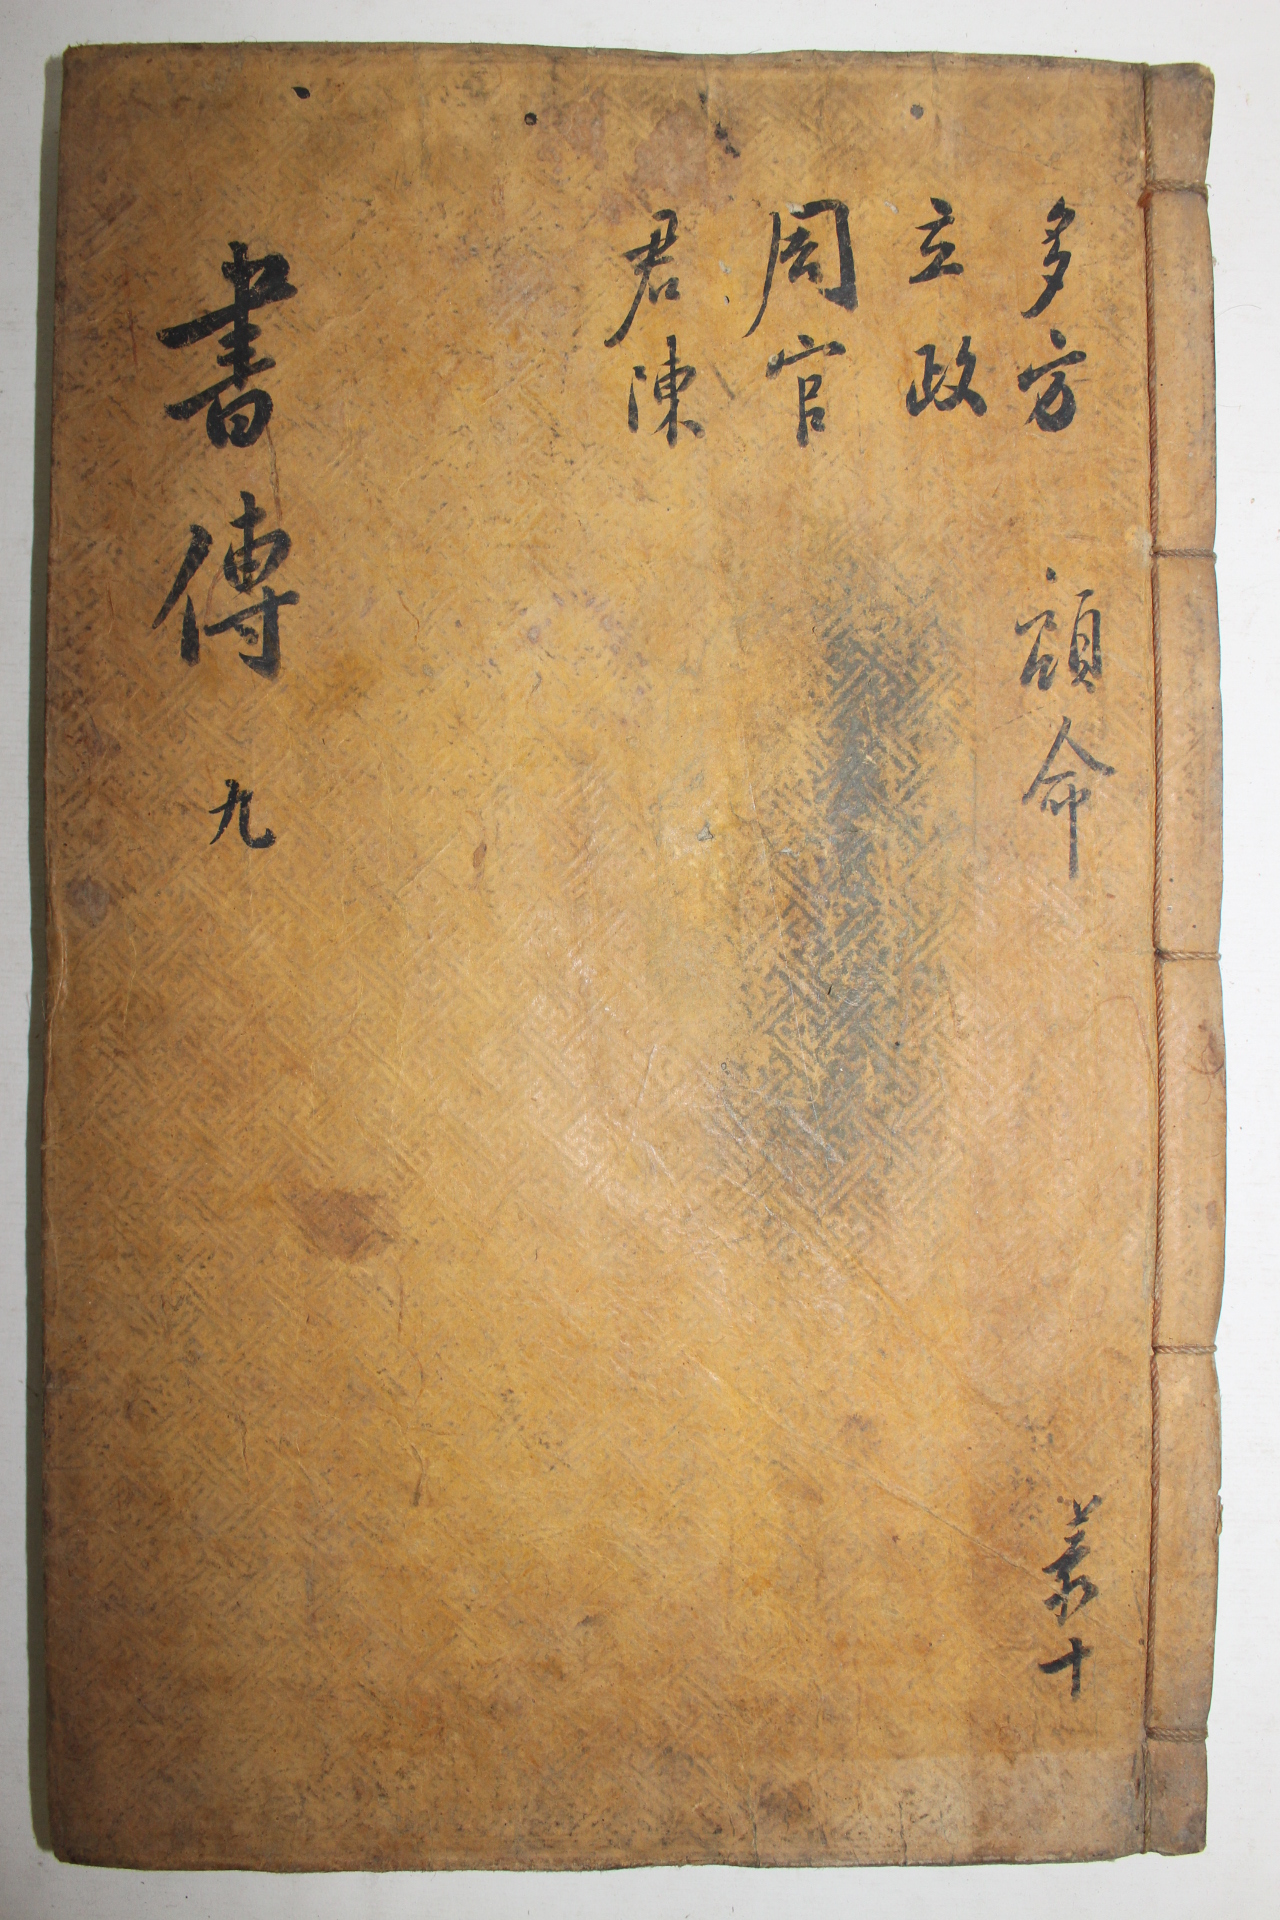 多方 顧命
十
立政
周官
君陳
書傳 九